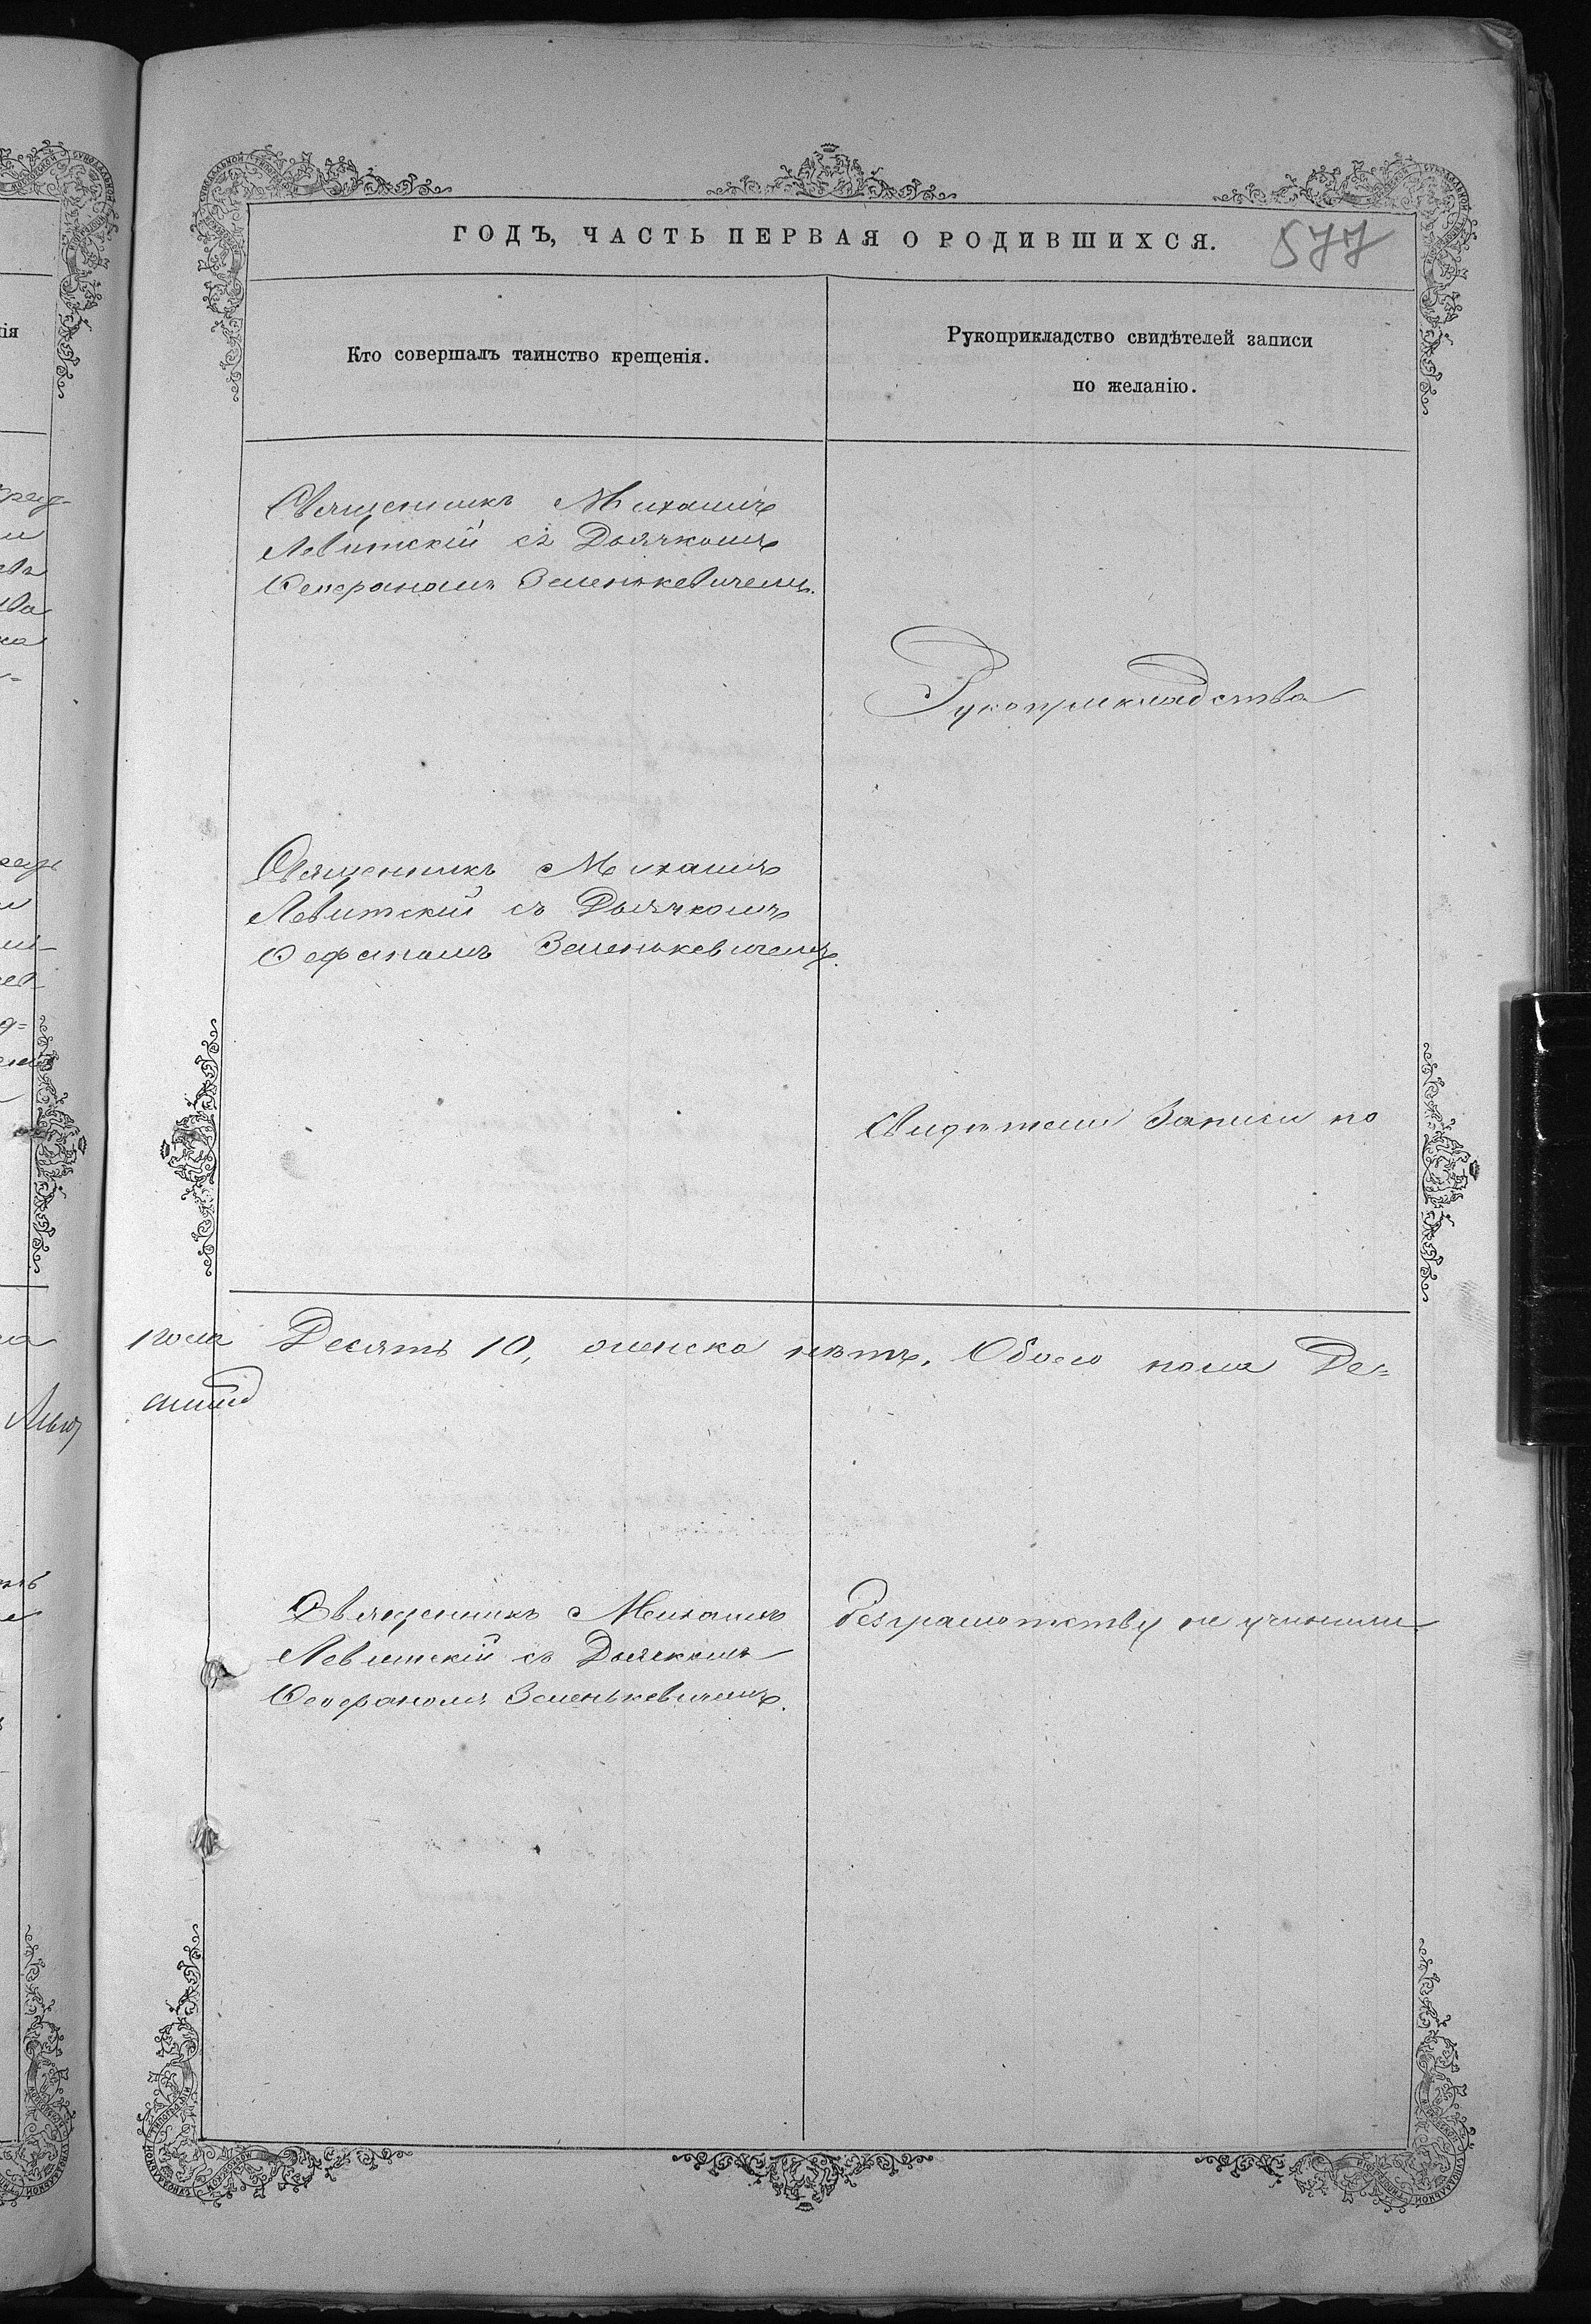 ГОДЪ, ЧАСТЬ ПЕРВАЯ О РОДИВШИХСЯ.
577
Кто совершалъ таинство крещенія.
Рукоприкладство свидѣтелей записи
по желанію.
Священникъ Михаилъ
Левитскій съ Дьячкомъ
Зеленькевичемъ.
Рукоприкладства
Священникъ Михаилъ
Левитскій съ Дьячкомъ
Зеленькевичемъ.
Свидѣтели Записи по
пола Десять 10, женска нѣтъ, Обоего пола Де=
Священникъ Михаилъ
Левитскій съ Дьячкомъ
Зеленькевичемъ.
безграмотству не учинили